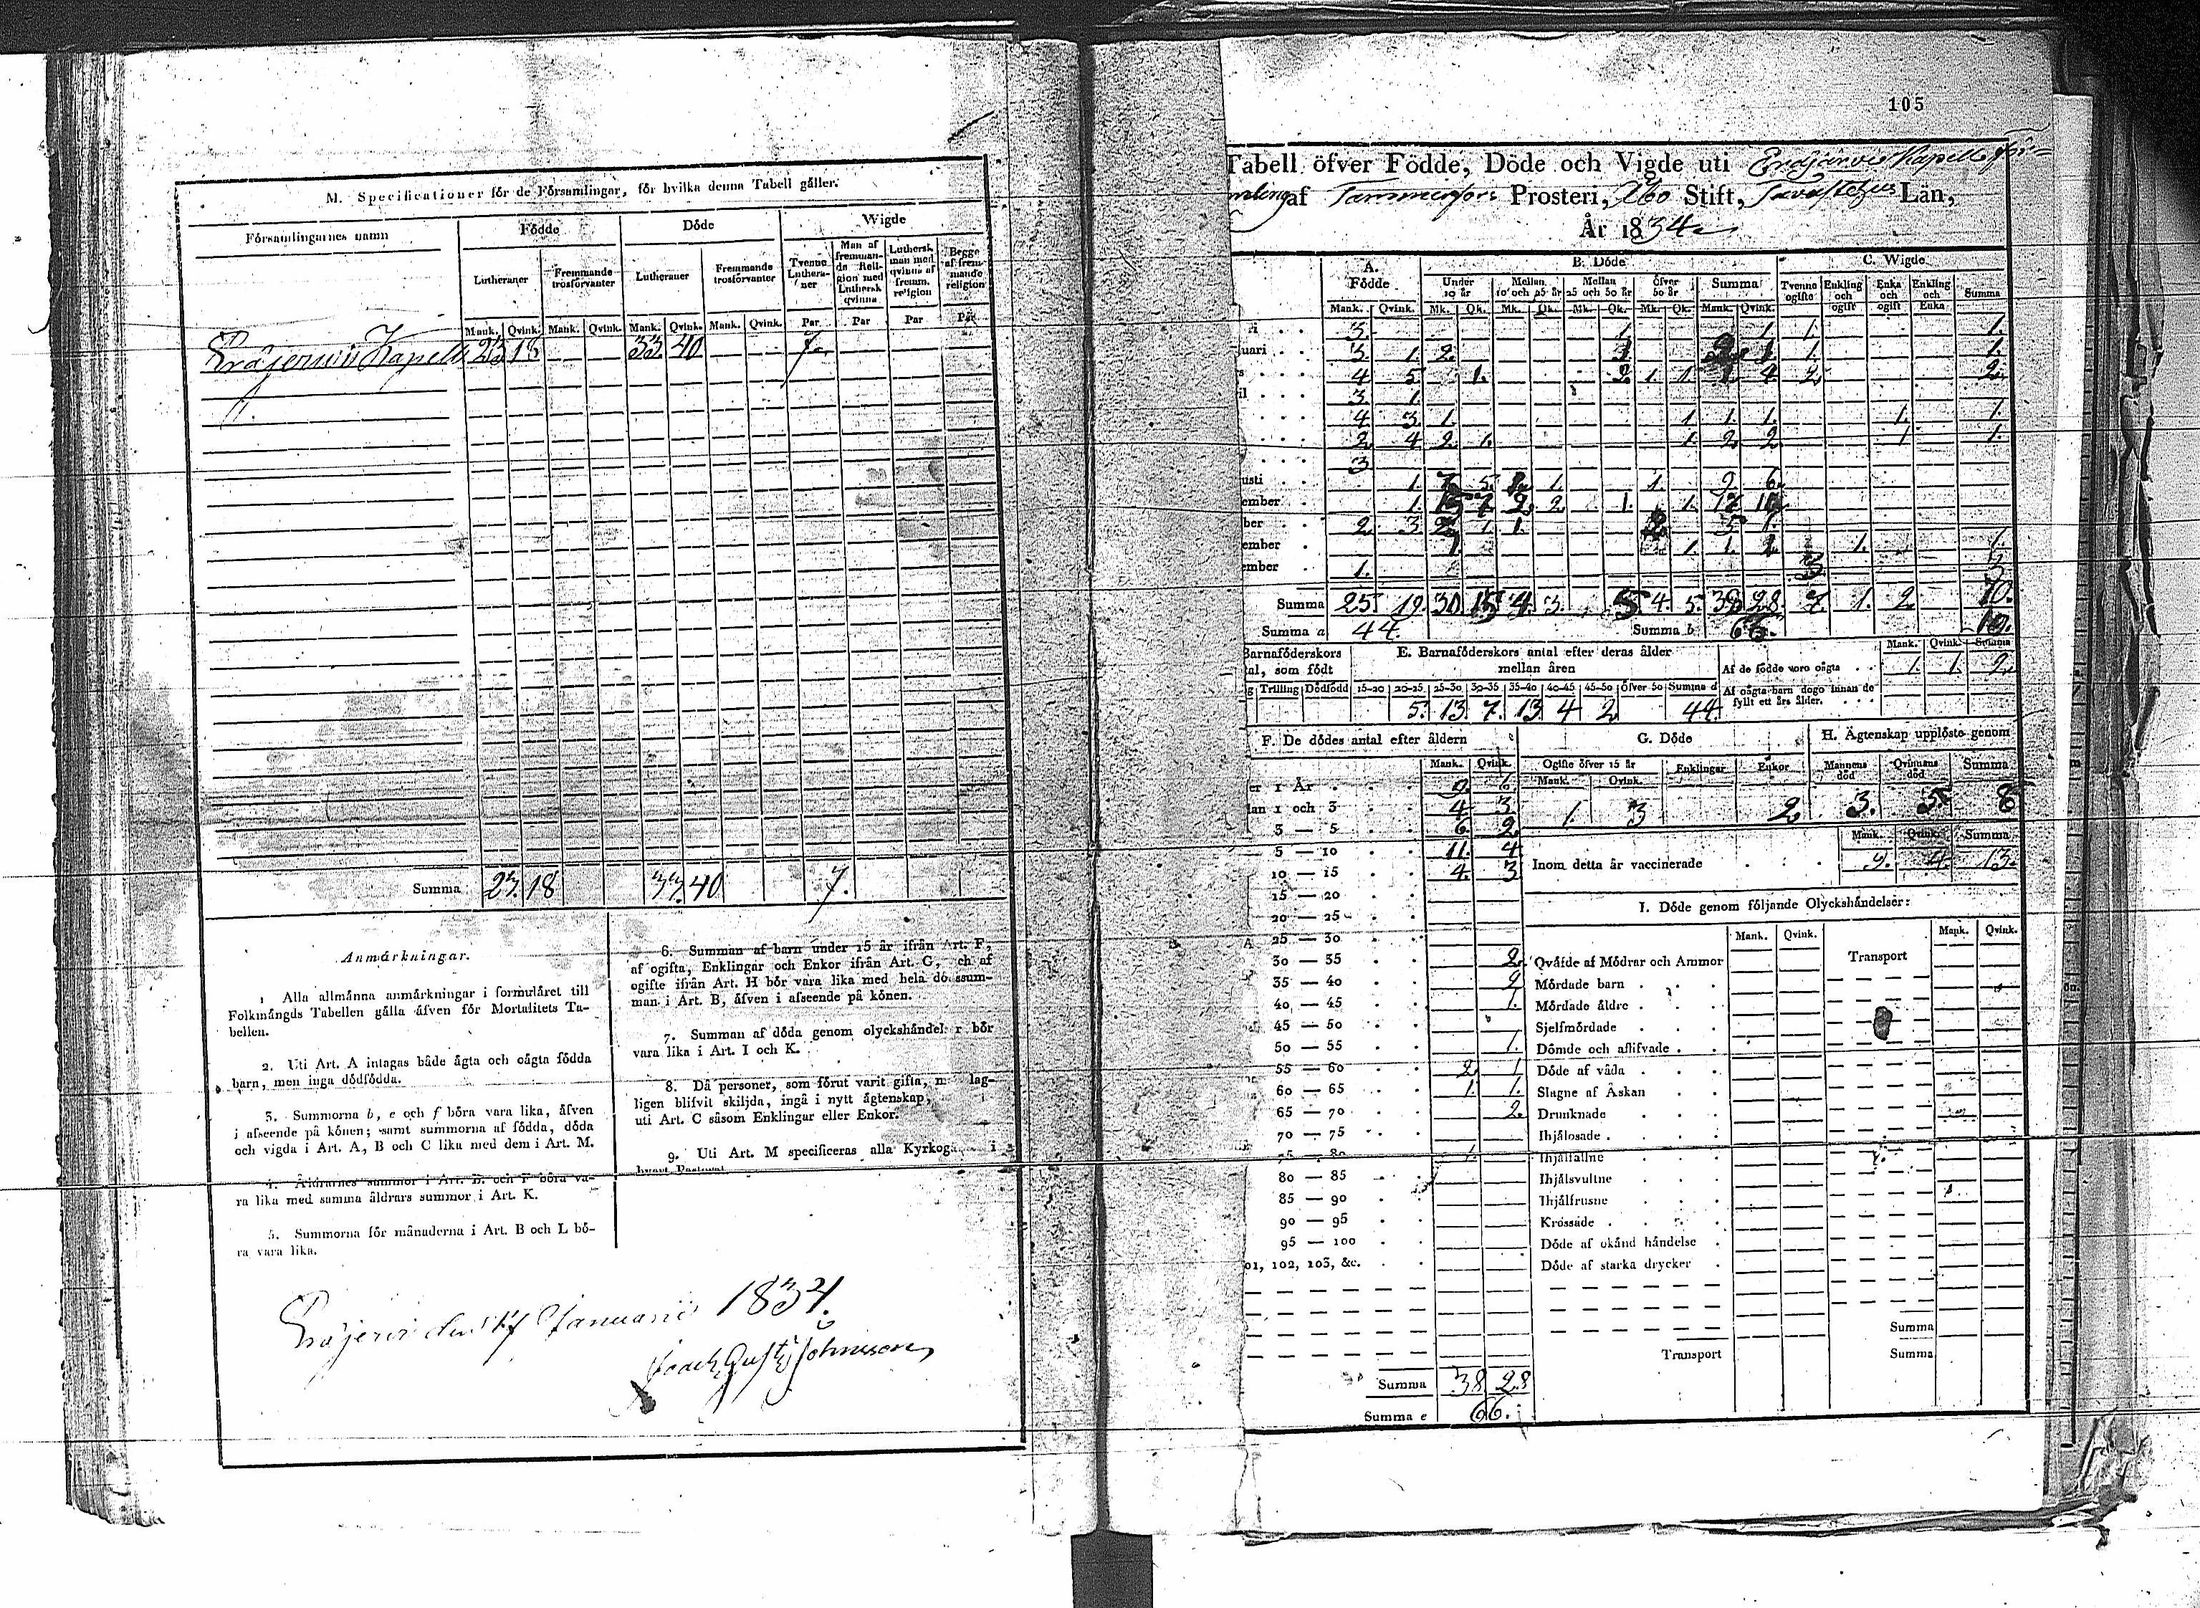 M. Specificationer för de Församlingar, för hvilka denna Tabell gäller.
Församlingarnes namn
Födde
Döde
Wigde
Lutheraner
Fremmande trosförvanter
Lutheraner
Fremmande trosförvanter
Tvenne Lutheraner
Man af fremmande Religion med Luthersk qvinna
Luthersk man med qvinna af fremm. religion
Begge af fremmande religion
Mank. Qvink. Mank. Qvink. Mank. Qvink. Mank. Qvink. Par Par Par Par
Kapell 23 18 33 40 7
Summa 23. 18 33. 40 7.
Anmärkningar.
1 Alla allmänna anmärkningar i formuläret till
Folkmängds Tabellen gälla äfven för Mortalitets Ta-
bellen.
2. Uti Art. A intagas både ägta och oägta födda
barn, men inga dödfödda.
3. Summorna b, e och f böra vara lika, äfven
i afseende på könen; samt summorna af födda, döda
och vigda i Art. A, B och C lika med dem i Art. M.
4. Åldrarnes summor i Art. B. och F böra va-
ra lika med samma åldrars summor i Art. K.
5. Summorna för månaderna i Art. B och L bö-
ra vara lika.
6. Summan af barn under 15 år ifrån Art. F,
af ogifta, Enklingar och Enkor ifrån Art. G, ch af
ogifte ifrån Art. H bör vara lika med hela dö ssum-
man i Art. B, äfven i afseende på könen.
7. Summan af döda genom olyckshändel r bör
vara lika i Art. I och K.
8. Då personer, som förut varit gifta, m lag-
ligen blifvit skiljda, ingå i nytt ägtenskap,
uti Art. C såsom Enklingar eller Enkor.
9. Uti Art. M specificeras alla Kyrkogä i
hvart Pastorat
den 17 Januarii 1834.
Gust Johnsson
105
Tabell öfver Födde, Döde och Vigde uti Kapells för=
af Tammerfors Prosteri, Åbo Stift, Tavastehus Län,
År 1834
A. Födde
B. Döde
C. Wigde
Under 10 år
Mellan 10 och 25 år
Mellan 25 och 50 år
Öfver 50 år
Summa
Tvenne ogifte
Enkling och ogift
Enka och ogift
Enkling och Enka
Summa
Mank. Qvink. Mk. Qk. Mk. Qk. Mk. Qk. Mk. Qk. Mank. Qvink.
ri 3. 1 1 1. 1.
uari 3 1. 2. 1 1. 1.
s 4 5. 1. 2. 1. 1. 1 4 2. 2.
il 3 1.
4 3 1. 1 1. 1. 1. 1.
2 4 2 1. 1. 2 2 1 1.
3
usti 1. 7 5 1. 1. 9 6.
ember 1. 7 2. 2 1. 1.
ber 2. 3 2 1 1. 2 5 1
ember 1 1. 1. 2 1. 1.
ember 1. 3 3
Summa 25. 19. 30. 15 4. 3. 5 4. 5. 38 28. 7. 1. 2. 10.
Summa a 44. Summa b 66. 10.
Barnaföderskors
tal, som födt
g Trilling Dödfödd
E. Barnaföderskors antal efter deras ålder
mellan åren
15-20 20-25 25-30 30-35 35-40 40-45 45-50 Öfver 50 Summa d
5. 13. 7. 13. 4 2. 44.
Mank. Qvink. Summa
Af de födde voro oägta 1. 1. 2.
Af oägta barn dogo innan de
fyllt ett års ålder.
F. De dödes antal efter åldern
Mank. Qvink.
er 1 År 9. 6.
lan 1 och 3 4. 3
3 — 5 6. 2.
5 — 10 11. 4.
10 — 15 4. 3
15 — 20
20 — 25
25 — 30
30 — 35 2.
35 — 40 2
40 — 45 1.
45 — 50
50 — 55 1.
55 — 60 2. 1
60 — 65 1. 1.
65 — 70 2.
70 — 75
75 — 80 1.
80 — 85
85 — 90
90 — 95
95 — 100
01, 102, 103, &c.
Summa 38 28
Summa e 66.
G. Döde
Ogifte öfver 15 år
Mank. Qvink.
Enklingar
Enkor
1. 3 2.
H. Ägtenskap upplöste genom
Mannens död
Qvinnans död
Summa
3. 5. 8
Mank. Qvink. Summa
Inom detta år vaccinerade 9. 4. 13.
I. Döde genom följande Olyckshändelser:
Mank. Qvink. Mank. Qvink.
Qväfde af Mödrar och Ammor
Transport
Mördade barn
Mördade äldre
Sjelfmördade
Dömde och aflifvade
Döde af våda
Slagne af Åskan
Drunknade
Ihjälosade
Ihjälfallne
Ihjälsvultne
Ihjälfrusne
Krossade
Döde af okänd händelse
Döde af starka drycker
Summa
Transport
Summa